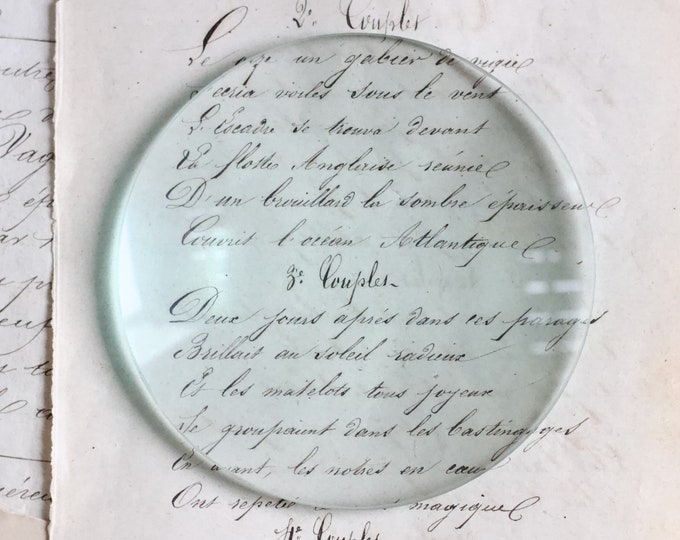 2e. Couplet
Le      un gabier de vigie
    cria voiles sous le vent
L'Escadre se trouva devant
La flotte Anglaise réunie
D'un brouillard la sombre épaisseur
Couvrit l'océan Atlantique
3e. Couplet
Deux jours après dans ces parages
Brillait au soleil radieux
Et les matelots tous joyeux
Se groupaient dans les bastingages
En        , les nôtres en cœur
Ont repeté        magique
4e. Couplet